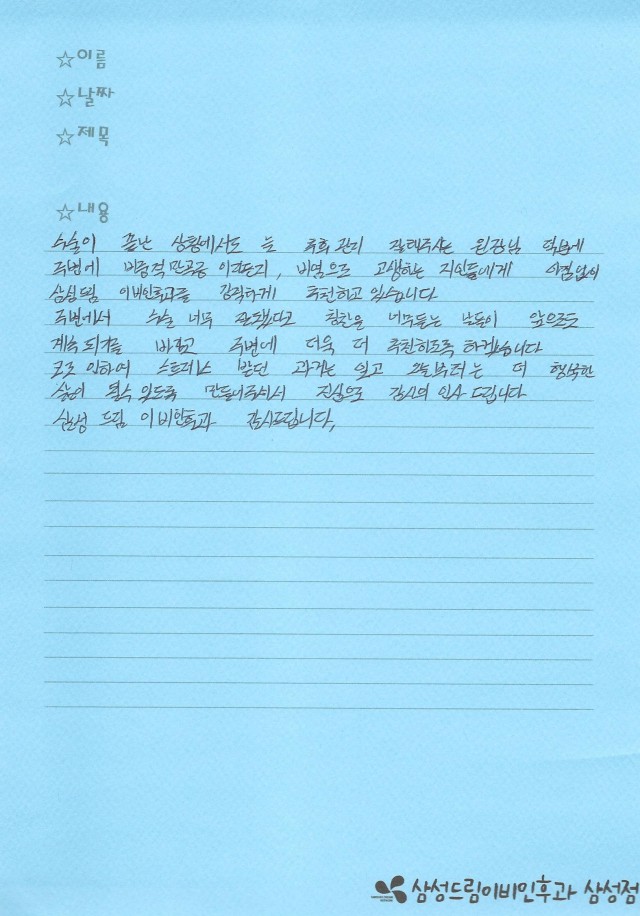 ☆이름
☆날짜
☆제목
☆내용
수술이 끝난 상황에서도 늘 사후관리 잘해주시는 원장님 덕분에
주변에 비중격만곡증 이갈든지, 비염으로 고생하는 지인들에게 어김없이
삼성드림 이비인후과를 강력하게 추천하고 있습니다
주변에서 수술 너무 잘됐다고 칭찬을 너무듣는 날들이 앞으로도
계속 되기를 바라고 주변에 더욱 더 추천하도록 하겠습니다
코로 인하여 스트레스 받던 과거는 잊고 오늘부터는 더 행복한
삶이 될수 있도록 만들어주셔서 진심으로 감사의 인사 드립니다
삼성 드림 이비인후과 감사드립니다,
삼성드림이비인후과 삼성점